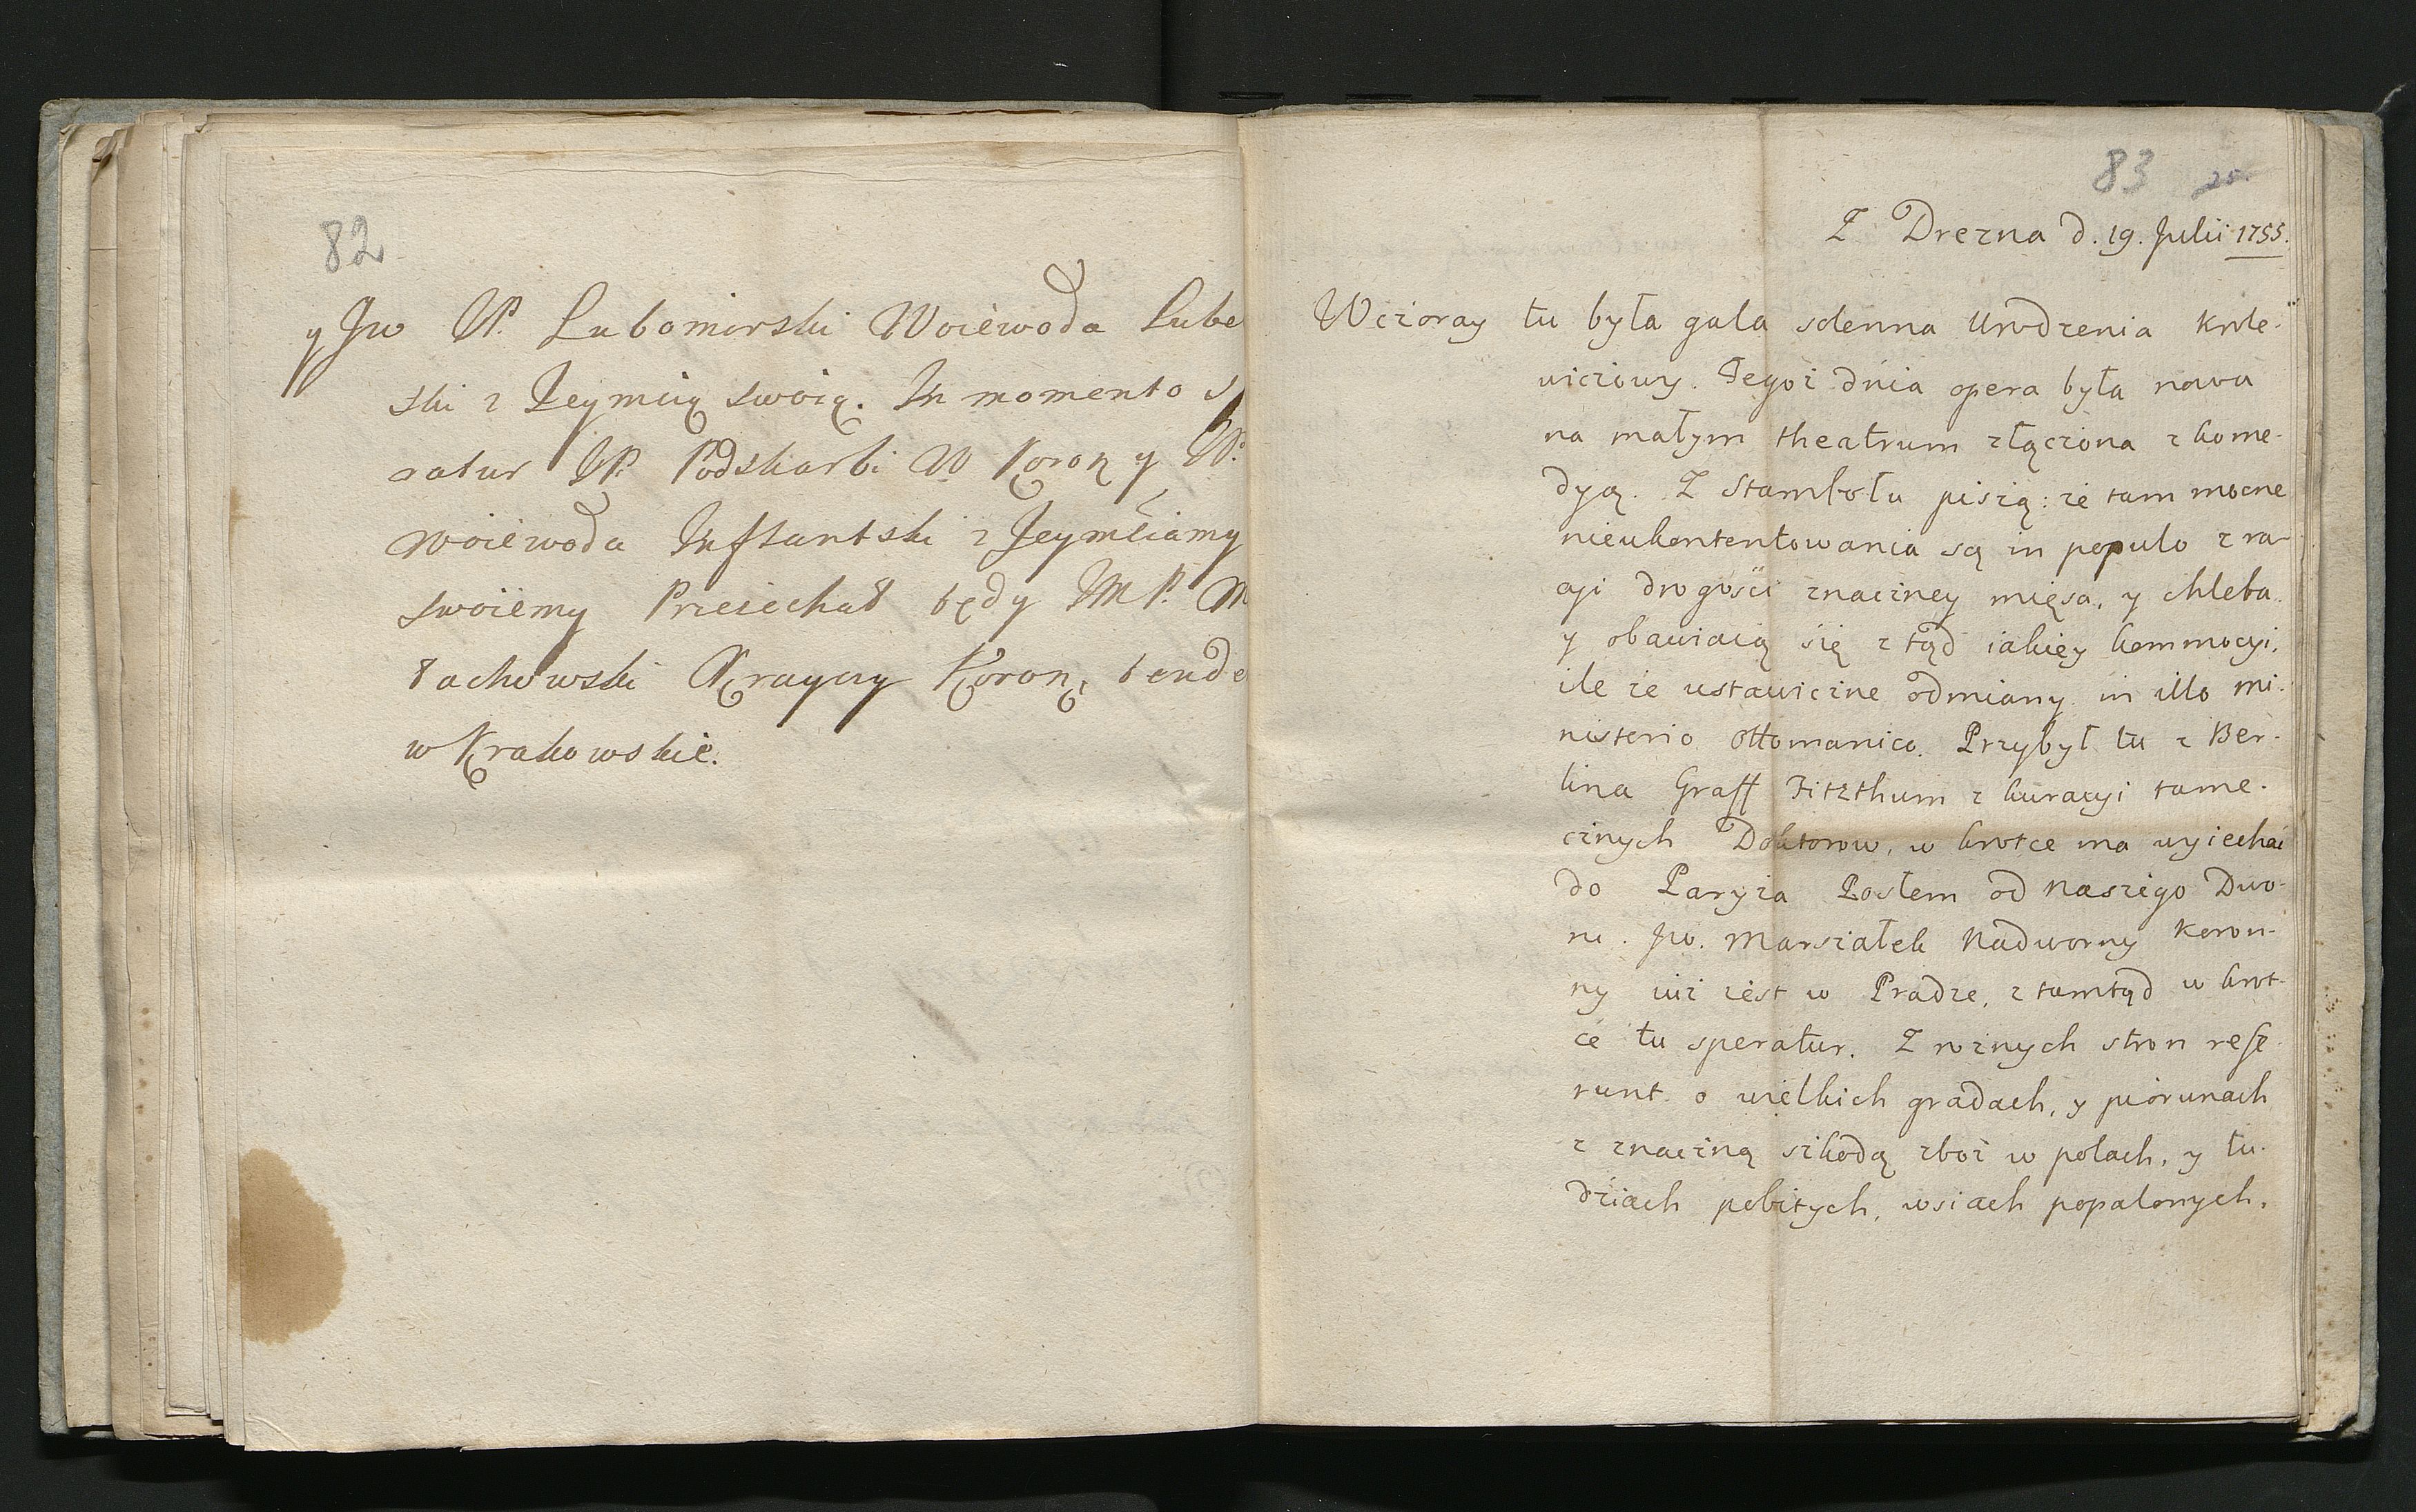 82
y Jw JP. Lubomirski Woiewoda Lube
ski z Jeymcią swoią. In momento s
ratur JP. Podskarbi W Koron y JP.
woiewoda Inflantski z Jeymciamy
swoiemy Przeiechał tędy JMP. M
łachowski Krayczy Koron, tende
w Krakowskie.
83 25.
Z Drezna d. 19. Julii 1755.
Wczoray tu była gala solenna Urodzenia Krole-
wiczowy. Tegoż dnia opera była nowa
na małym theatrum złączona z kome-
dyą. Z Stambołu piszą: że tam mocne
nieukontentowania są in populo z ra-
cyi drogości znaczney mięsa, y chleba
y obawiaią się z tąd iakiey kommocyi,
ile że ustawiczne odmiany in illo mi-
nisterio Ottomanico. Przybył tu z Ber-
lina Graff Fitzthum z kuracyi tame-
cznych Doktorow, w krotce ma wyiechać
do Paryża Posłem od naszego Dwo-
ru. Jw. Marszałek Nadworny Koron-
ny iuż iest w Pradze, z tamtąd w krot-
ce tu speratur. Z roznych stron refe-
runt o wielkich gradach, y piorunach
z znaczną szkodą zboż w polach, y lu-
dziach pobitych, wsiach popalonych.